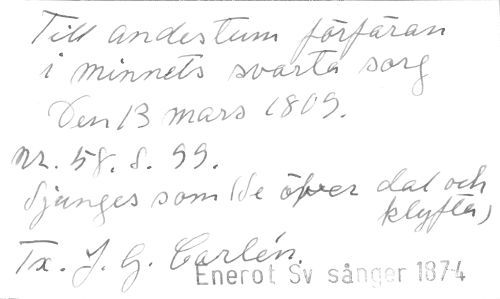 Till andestum förfäran
i minnets svarta sorg
Den 13 mars 1809.
nr. 58. s. 99.
Sjunges som (Se över dal och
klyfta)
Tx. J. G. Carlén.
Enerot Sv sånger 1874